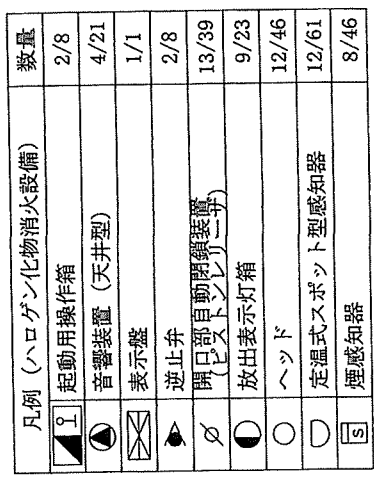 凡例（ハロゲン化物消火設備） 数量
起動用操作箱 2/8
音響装置（天井型） 4/21
表示盤 1/1
逆止弁 2/8
開口部自動閉鎖装置
（ピストンレリーザ） 13/39
放出表示灯箱 9/23
ヘッド 12/46
定温式スポット型感知器 12/61
S 煙感知器 8/46